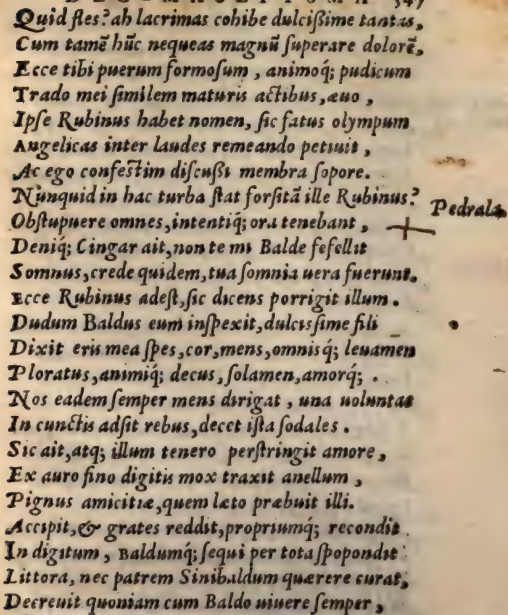 Quid fles? ah lacrimas cohibe dulcißime tantas,
Cum tamē hūc nequeas magnū superare dolorē,
Ecce tibi puerum formosum, animoq́; pudicum
Trado mei similem maturis actibus, æuo,
Ipse Rubinus habet nomen, sic fatus olympum
Angelicas inter laudes remeando petiuit,
Ac ego confestim discussi membra sopore.
Nunquid in hac turba stat forsitā ille Rubinus?
Pedrala
Obstupuere omnes, intentiq́; ora tenebant,
Deniq́; Cingar ait, non te mi Balde fefellit
Somnus, crede quidem, tua somnia uera fuerunt.
Ecce Rubinus adest, sic dicens porrigit illum.
Dudum Baldus eum inspexit, dulcissime fili
Dixit eris mea spes, cor, mens, omnisq́; leuamen
Ploratus, animiq́; decus, solamen, amorq́;.
Nos eadem semper mens dirigat, una uoluntas
In cunctis adsit rebus, decet ista sodales.
Sic ait, atq; illum tenero perstringit amore,
Ex auro fino digitis mox traxit anellum,
Pignus amicitiæ, quem læto præbuit illi.
Accipit, & grates reddit, propriumq́; recondit
In digitum, Baldumq́; sequi per tota spopondit
Littora, nec patrem Sinibaldum quærere curat,
Decreuit quoniam cum Baldo uiuere semper,